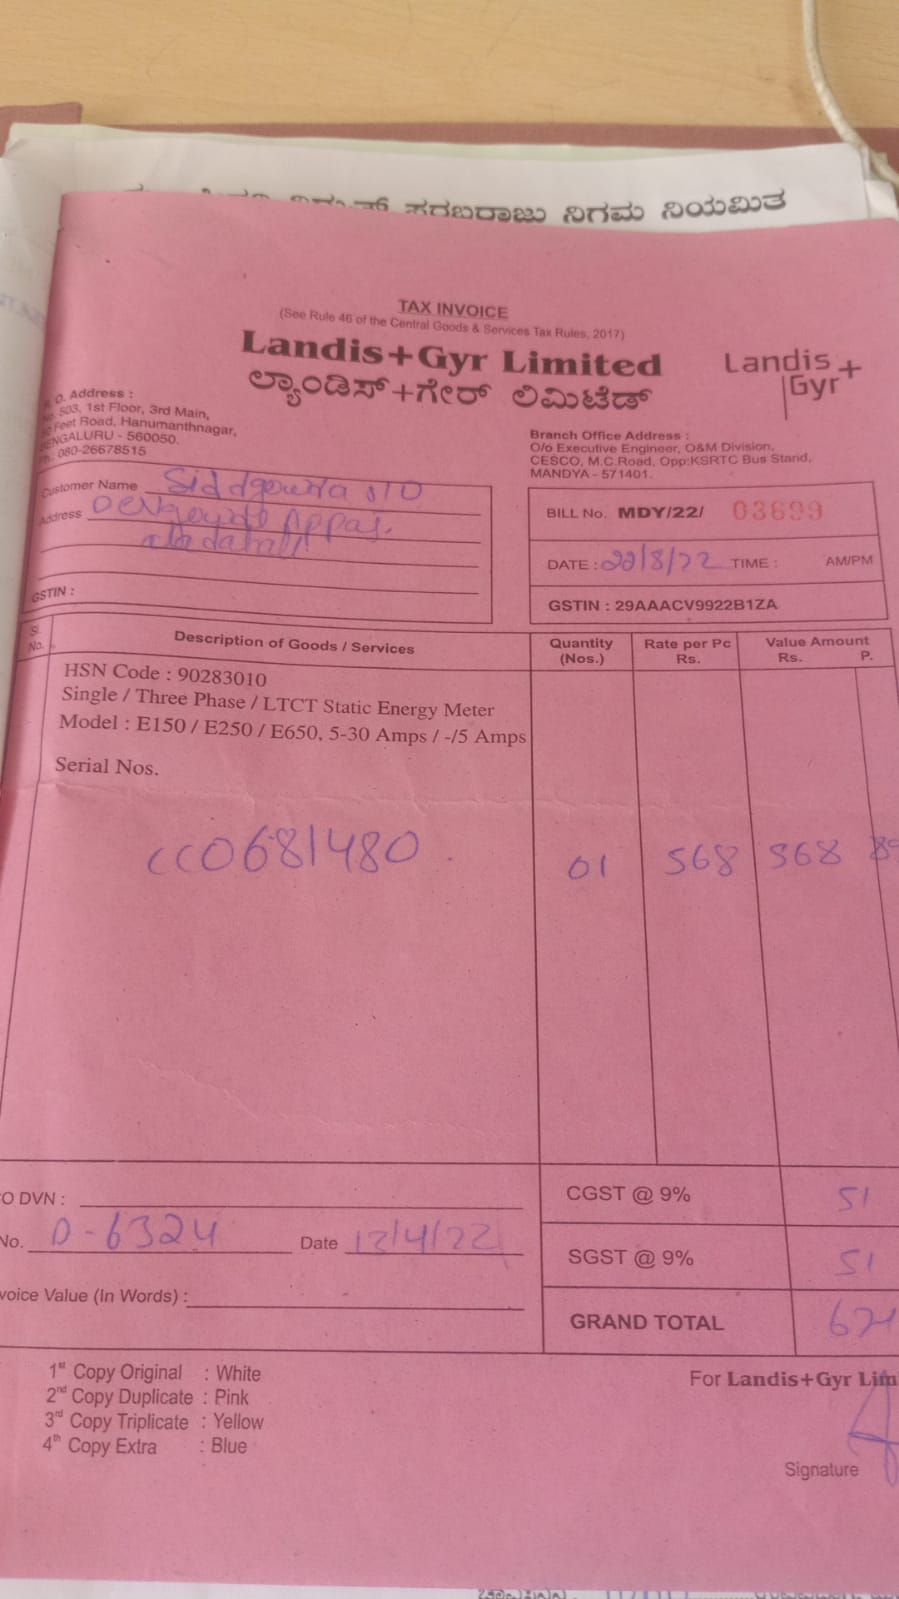 ಸರಬರಾಜು ನಿಗಮ ನಿಯಮಿತ
TAX INVOICE
(See Rule 46 of the Central Goods & Services Tax Rules, 2017)
Landis+Gyr Limited
ಲ್ಯಾಂಡಿಸ್+ಗೇರ್ ಲಿಮಿಟೆಡ್
Landis+
Gyr
O. Address :
503, 1st Floor, 3rd Main,
Feet Road, Hanumanthnagar,
BENGALURU - 560050.
080-26678515
Branch Office Address :
O/o Executive Engineer, O&M Division,
CESCO, M.C.Road, Opp:KSRTC Bus Stand,
MANDYA - 571401.
Customer Name Siddgowda S/O
Address
GSTIN :
BILL No. MDY/22/ 03699
DATE : 22/8/22 TIME : AM/PM
GSTIN : 29AAACV9922B1ZA
Sl. No. Description of Goods / Services Quantity (Nos.) Rate per Pc Rs. Value Amount Rs. P.
HSN Code : 90283010
Single / Three Phase / LTCT Static Energy Meter
Model : E150 / E250 / E650, 5-30 Amps / -/5 Amps
Serial Nos.
CC0681480 01 568 568
O DVN :
No. D-6324 Date 12/4/22
voice Value (In Words) :
CGST @ 9% 51
SGST @ 9% 51
GRAND TOTAL
1st Copy Original : White
2nd Copy Duplicate : Pink
3rd Copy Triplicate : Yellow
4th Copy Extra : Blue
For Landis+Gyr Lim
Signature